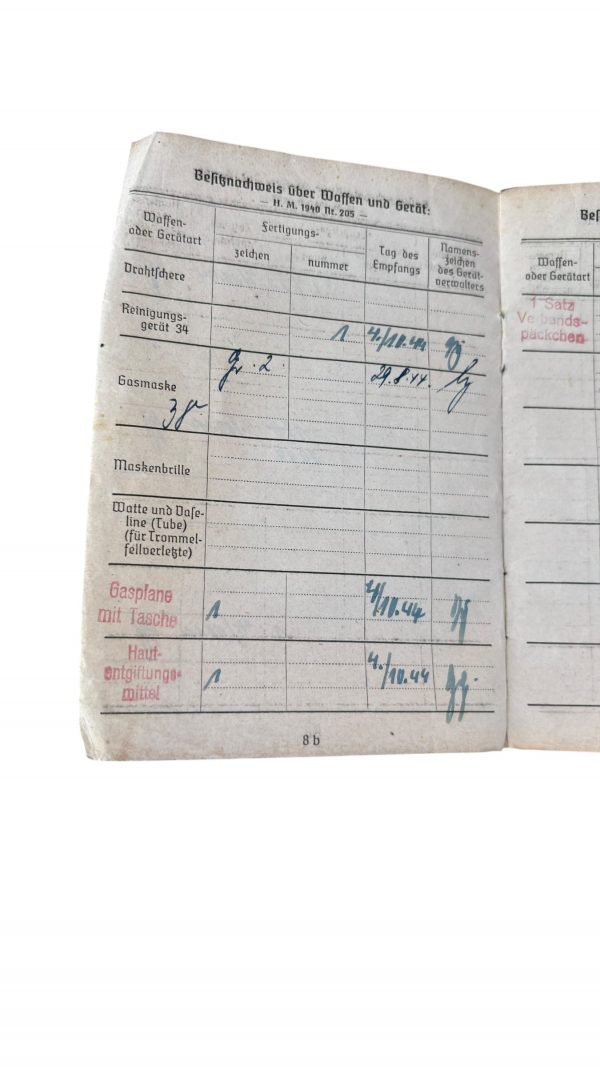 Besitznachweis über Waffen und Gerät:
— H. M. 1940 Nr. 205 —
Waffen-
oder Gerätart
Fertigungs-
zeichen
nummer
Tag des
Empfangs
Namens-
zeichen
des Gerät-
verwalters
Drahtschere
Reinigungs-
gerät 34
1 4./10.44
Gasmaske
Gr. 2 29.8.44
Maskenbrille
Watte und Vase-
line (Tube)
(für Trommel-
fellverletzte)
Gasplane
mit Tasche
1 4/10.44
Haut-
entgiftungs-
mittel
1 4./10.44
8 b
Bes
Waffen-
oder Gerätart
1 Satz
Verbands-
päckchen